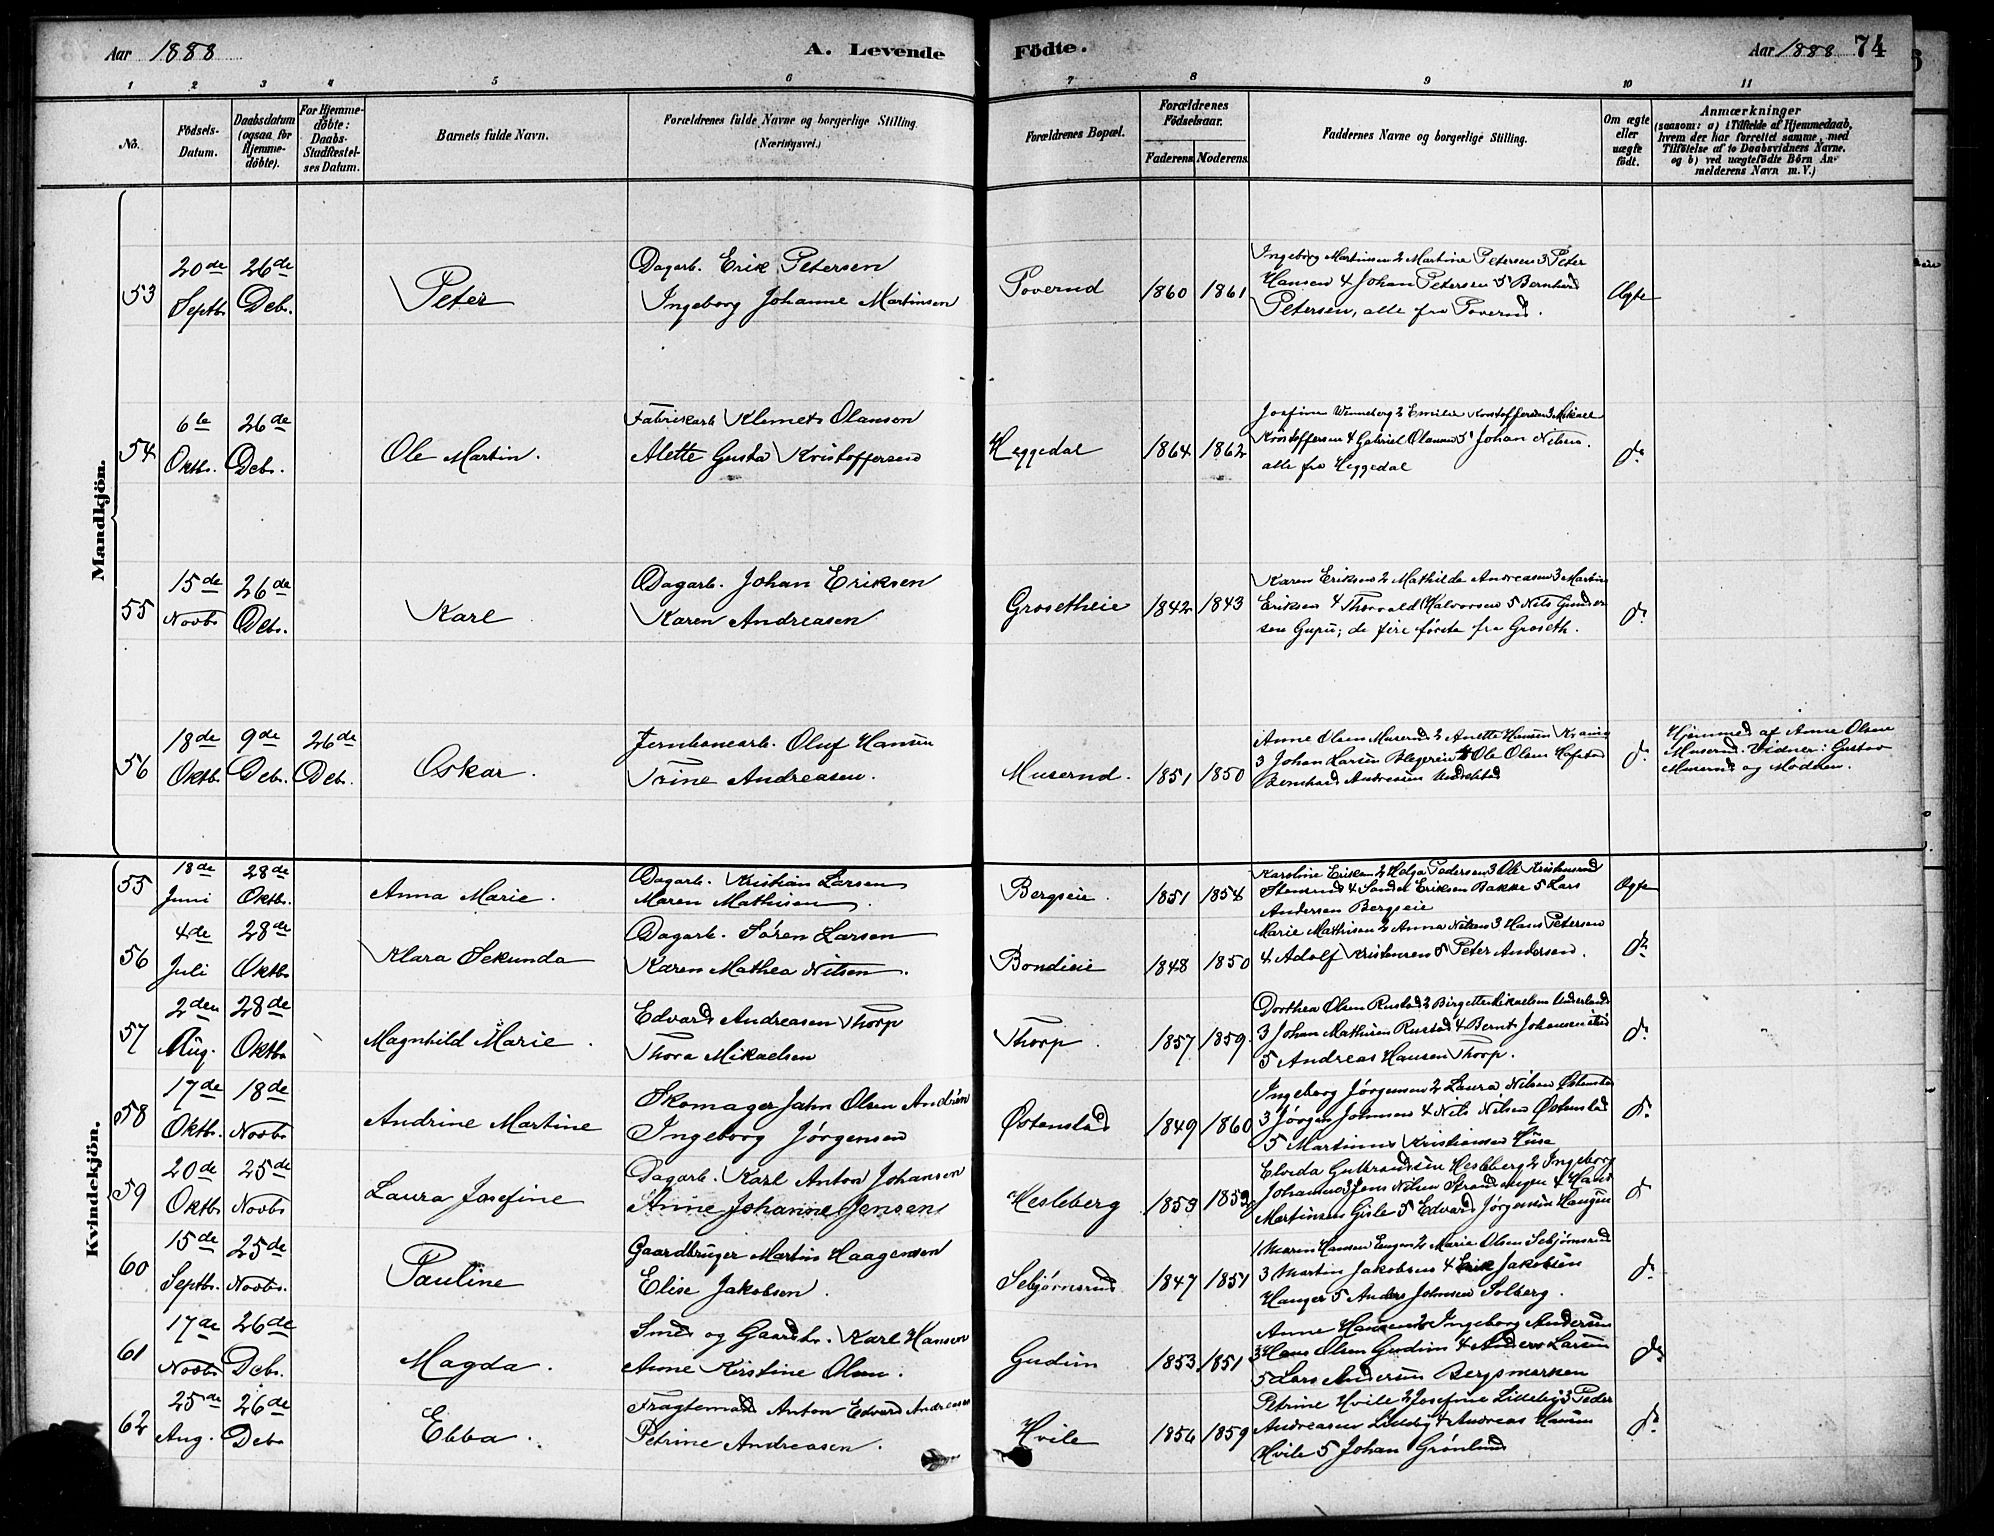 Aar 1888
A. Levende
Födte.
Aar 1888
74
1 2 3 4 5 6 7 8 9 10 11
No.
Födsels-
Datum.
Daabsdatum
(ogsaa for
Hjemme-
döbte).
For Hjemme-
döbte:
Daabs-
Stadfæstel-
ses Datum.
Barnets fulde Navn.
Forældrenes fulde Navne og borgerlige Stilling
(Næringsvei.)
Forældrenes Bopæl.
Forældrenes
Födselsaar.
Faderens Moderens
Faddernes Navne og borgerlige Stilling.
Om ægte
eller
uægte
födt.
Anmærkninger
(saasom: a) i Tilfælde af Hjemmedaab,
hvem der har forrettet samme, med
Tilföielse af to Daabsvidners Navne,
og b) ved uægtefödte Börn An-
melderens Navn m. V.)
Mandkjön.
53
20de
Septb.
26de
Deb.
Peter
Dagarb. Erik Petersen
Ingeborg Johanne Martinsen
Poverud
1860 1861
Ingeborg Martinsen 2 Martine Petersen 3 Peter
Hansen 4 Johan Petersen 5 Bernhard
Petersen, alle fra Poverud.
Ægte
54
6te
Oktb.
26de
Deb.
Ole Martin.
Fabrikarb Klemet Olausen
Alette Gusta Kristoffersen
Heggedal
1864 1862
Josefine Winneberg 2 Emilie Kristoffersen 3 Mikael
Kristoffersen 4 Gabriel Olausen 5 Johan Nilsen.
alle fra Heggedal
do
55
15de
Novb.
26de
Deb.
Karl
Dagarb. Johan Eriksen
Karen Andreasen
Grosetheie
1842 1843
Karen Eriksen 2 Mathilde Andreasen 3 Martin
Eriksen 4 Thorvald Halvorsen 5 Nils Gunder
sen Gupu; de fire første fra Groseth.
do
56
18de
Oktb.
9de
Deb.
26de
Deb.
Oskar.
Jernbanearb. Oluf Hansen
Trine Andreasen.
Muserud.
1851 1850
Anne Olsen Muserud 2 Anette Hansen
3 Johan Larsen 4 Ole Olsen Hofstad
Bernhard Andreasen Undelstad
do
Hjemmed af Anne Olsen
Muserud. Vidner: Gustav
Muserud og Modren.
Kvindekjön.
55
18de
Juni
28de
Oktb.
Anna Marie.
Dagarb. Kristian Larsen
Maren Mathisen.
Bergseie.
1851 1854
Karoline Eriksen 2 Helga Pedersen 3 Ole Kristiansen
Stensrud 4 Sander Eriksen Bakke 5 Lars
Andersen Bergseie
Ægte
56
4de
Juli
28de
Oktb.
Klara Sekunda
Dagarb. Søren Larsen
Karen Mathea Nilsen.
Bondieie
1848 1850
Marie Mathisen 2 Anna Nilsen 3 Hans Petersen
4 Adolf Kristensen 5 Peter Andersen.
do
57
2den
Aug.
28de
Oktb.
Magnhild Marie.
Edvard Andreasen Thorp
Thora Mikaelsen
Thorp.
1857 1859.
Dorthea Olsen Rustad 2 Birgette Mikaelsen Underland
3 Johan Mathisen Rustad 4 Bernt Johansen ibid
5 Andreas Hansen Thorp.
do
58
17de
Oktb.
18de
Novb.
Andrine Martine
Skomager Jahn Olsen Andrén
Ingeborg Jørgensen
Østenstad
1849 1860
Ingeborg Jørgensen 2 Laura Nilsen Østenstad
3 Jørgen Johnsen 4 Nils Nilsen Østenstad
5 Martinus Kristiansen Huse
do
59
20de
Oktb.
25de
Novb.
Laura Josefine
Dagarb. Karl Anton Johansen
Anne Johanne Jensen
Hesleberg
1859 1859
Elvida Gulbrandsen Hesleberg 2 Ingeborg
Johansen 3 Jens Nilsen Strandengen 4 Hans
Martinsen Gisle 5 Edvard Jørgensen Haugen
do
60
15de
Septb.
25de
Novb.
Pauline
Gaardbruger Martin Haagensen
Elise Jakobsen.
Sebjørnsrud
1847 1851
1 Maren Hansen Engen 2 Marie Olsen Sebjørnsrud
3 Martin Jakobsen 4 Erik Jakobsen
Hanger 5 Anders Johnsen Solberg.
do
61
17de
Novb.
26de
Deb.
Magda.
Smed og Gaardbr. Karl Hansen
Anne Kirstine Olsen.
Gudim
1853 1851
Anne Hansen 2 Ingeborg Andersen
3 Hans Olsen Gudim 4 Anders Larsen
5 Lars Andersen Bergsmarken
do
62
25de
Aug.
26de
Deb.
Ebba.
Fragtemand Anton Edvard Andreasen
Petrine Andreasen.
Hvile
1856 1859
Petrine Hvile 2 Josefine Lilleby 3 Peder
Andreasen Lilleby 4 Andreas Hansen
Hvile 5 Johan Grønlund
do